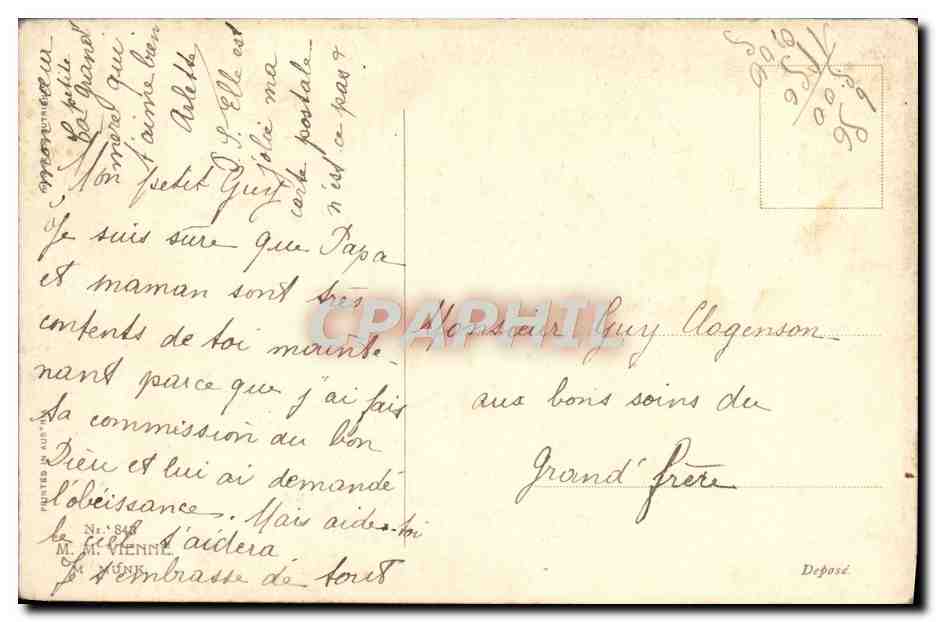 Mon petit Guy
Je suis sûre que Papa
et maman sont très
contents de toi mainte-
nant parce que j'ai fais
ta commission du bon
Dieu et lui ai demandé
l'obéissance. Mais aide-toi
le ciel t'aidera
Je t'embrasse de tout
mon cœur
Ta petite
Grand
mère qui
t'aime bien
Arlette
P.S. Elle est
jolie ma
carte postale
n'est ce pas?
Monsieur Guy Clogenson
aux bons soins du
Grand' frère
PRINTED IN AUSTRIA
Nr. 848
M. M. VIENNE
M. MUNK
Deposé
CPAPHIL